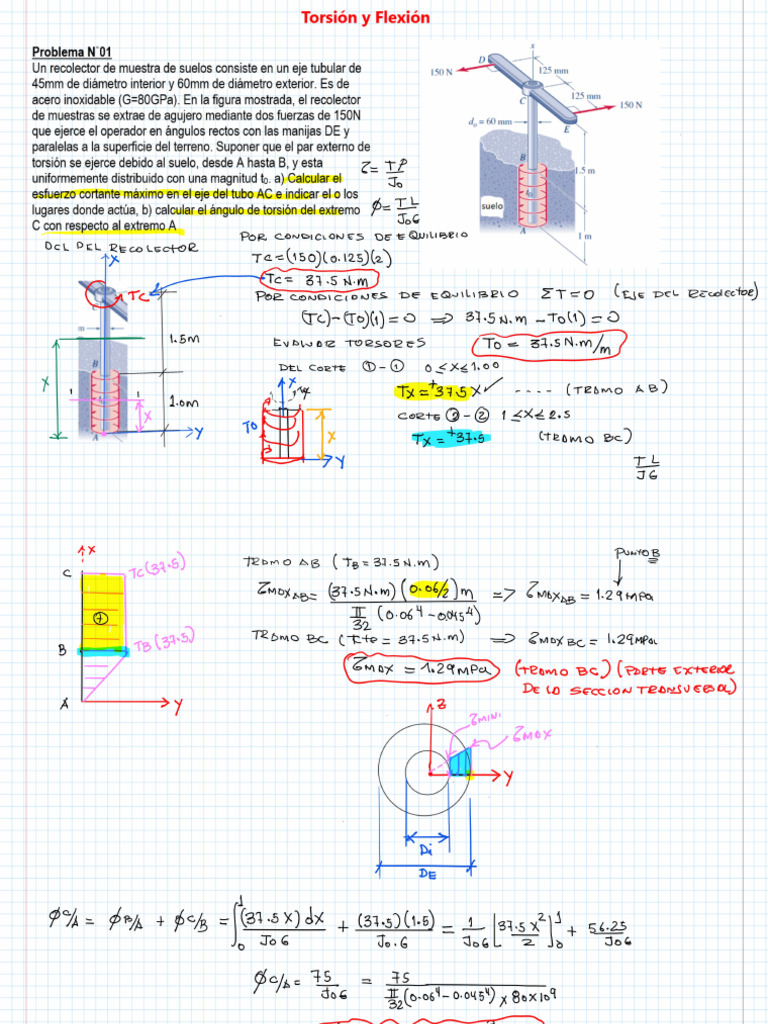 Torsión y Flexión
Problema N°01
Un recolector de muestra de suelos consiste en un eje tubular de
45mm de diámetro interior y 60mm de diámetro exterior. Es de
acero inoxidable (G=80GPa). En la figura mostrada, el recolector
de muestras se extrae de agujero mediante dos fuerzas de 150N
que ejerce el operador en ángulos rectos con las manijas DE y
paralelas a la superficie del terreno. Suponer que el par externo de
torsión se ejerce debido al suelo, desde A hasta B, y esta
uniformemente distribuido con una magnitud t₀. a) Calcular el
esfuerzo cortante máximo en el eje del tubo AC e indicar el o los
lugares donde actúa, b) calcular el ángulo de torsión del extremo
C con respecto al extremo A
x
D
150 N
125 mm
C
125 mm
150 N
E
d₀ = 60 mm
B
1.5 m
suelo
A
1 m
ζ = TP/J₀
ϕ = TL/J₀G
DCL DEL RECOLECTOR
POR CONDICIONES DE EQUILIBRIO
TC = (150)(0.125)(2)
TC = 37.5 N.m
POR CONDICIONES DE EQUILIBRIO ΣT=0 (EJE DEL RECOLECTOR)
(TC)-(TO)(1)=0 ⇒ 37.5 N.m - TO(1) = 0
EVALUAR TORSORES
TO = 37.5 N.m/m
DEL CORTE ①-① 0≤X≤1.00
TX = +37.5X ✓ .... (TRAMO AB)
CORTE ②-② 1≤X≤2.5
TX = +37.5 (TRAMO BC)
TL/JG
X
TC
m
1.5m
B
X
1.0m
1
1
X
A
Y
X
TX
TO
X
Y
X
C
TC (37.5)
B
TB (37.5)
A
Y
TRAMO AB (TB = 37.5 N.m)
PUNTO B
ζMAX AB = (37.5 N.m)(0.06/2)m / π/32 (0.06⁴ - 0.045⁴) ⇒ ζMAX AB = 1.29 MPa
TRAMO BC (TTO = 37.5 N.m) ⇒ ζMAX BC = 1.29 MPa
ζMAX = 1.29 MPa (TRAMO BC) (PARTE EXTERIOR
DE LA SECCION TRANSVERSAL)
Z
ζMIN.
ζMAX
Y
Di
DE
ϕC/A = ϕB/A + ϕC/B = ∫₀¹ (37.5X)dX / J₀G + (37.5)(1.5) / J₀.G = 1/J₀G [37.5X²/2]₀¹ + 56.25/J₀G
ϕC/A = 75/J₀G = 75 / π/32 (0.06⁴ - 0.045⁴) x 80x10⁹